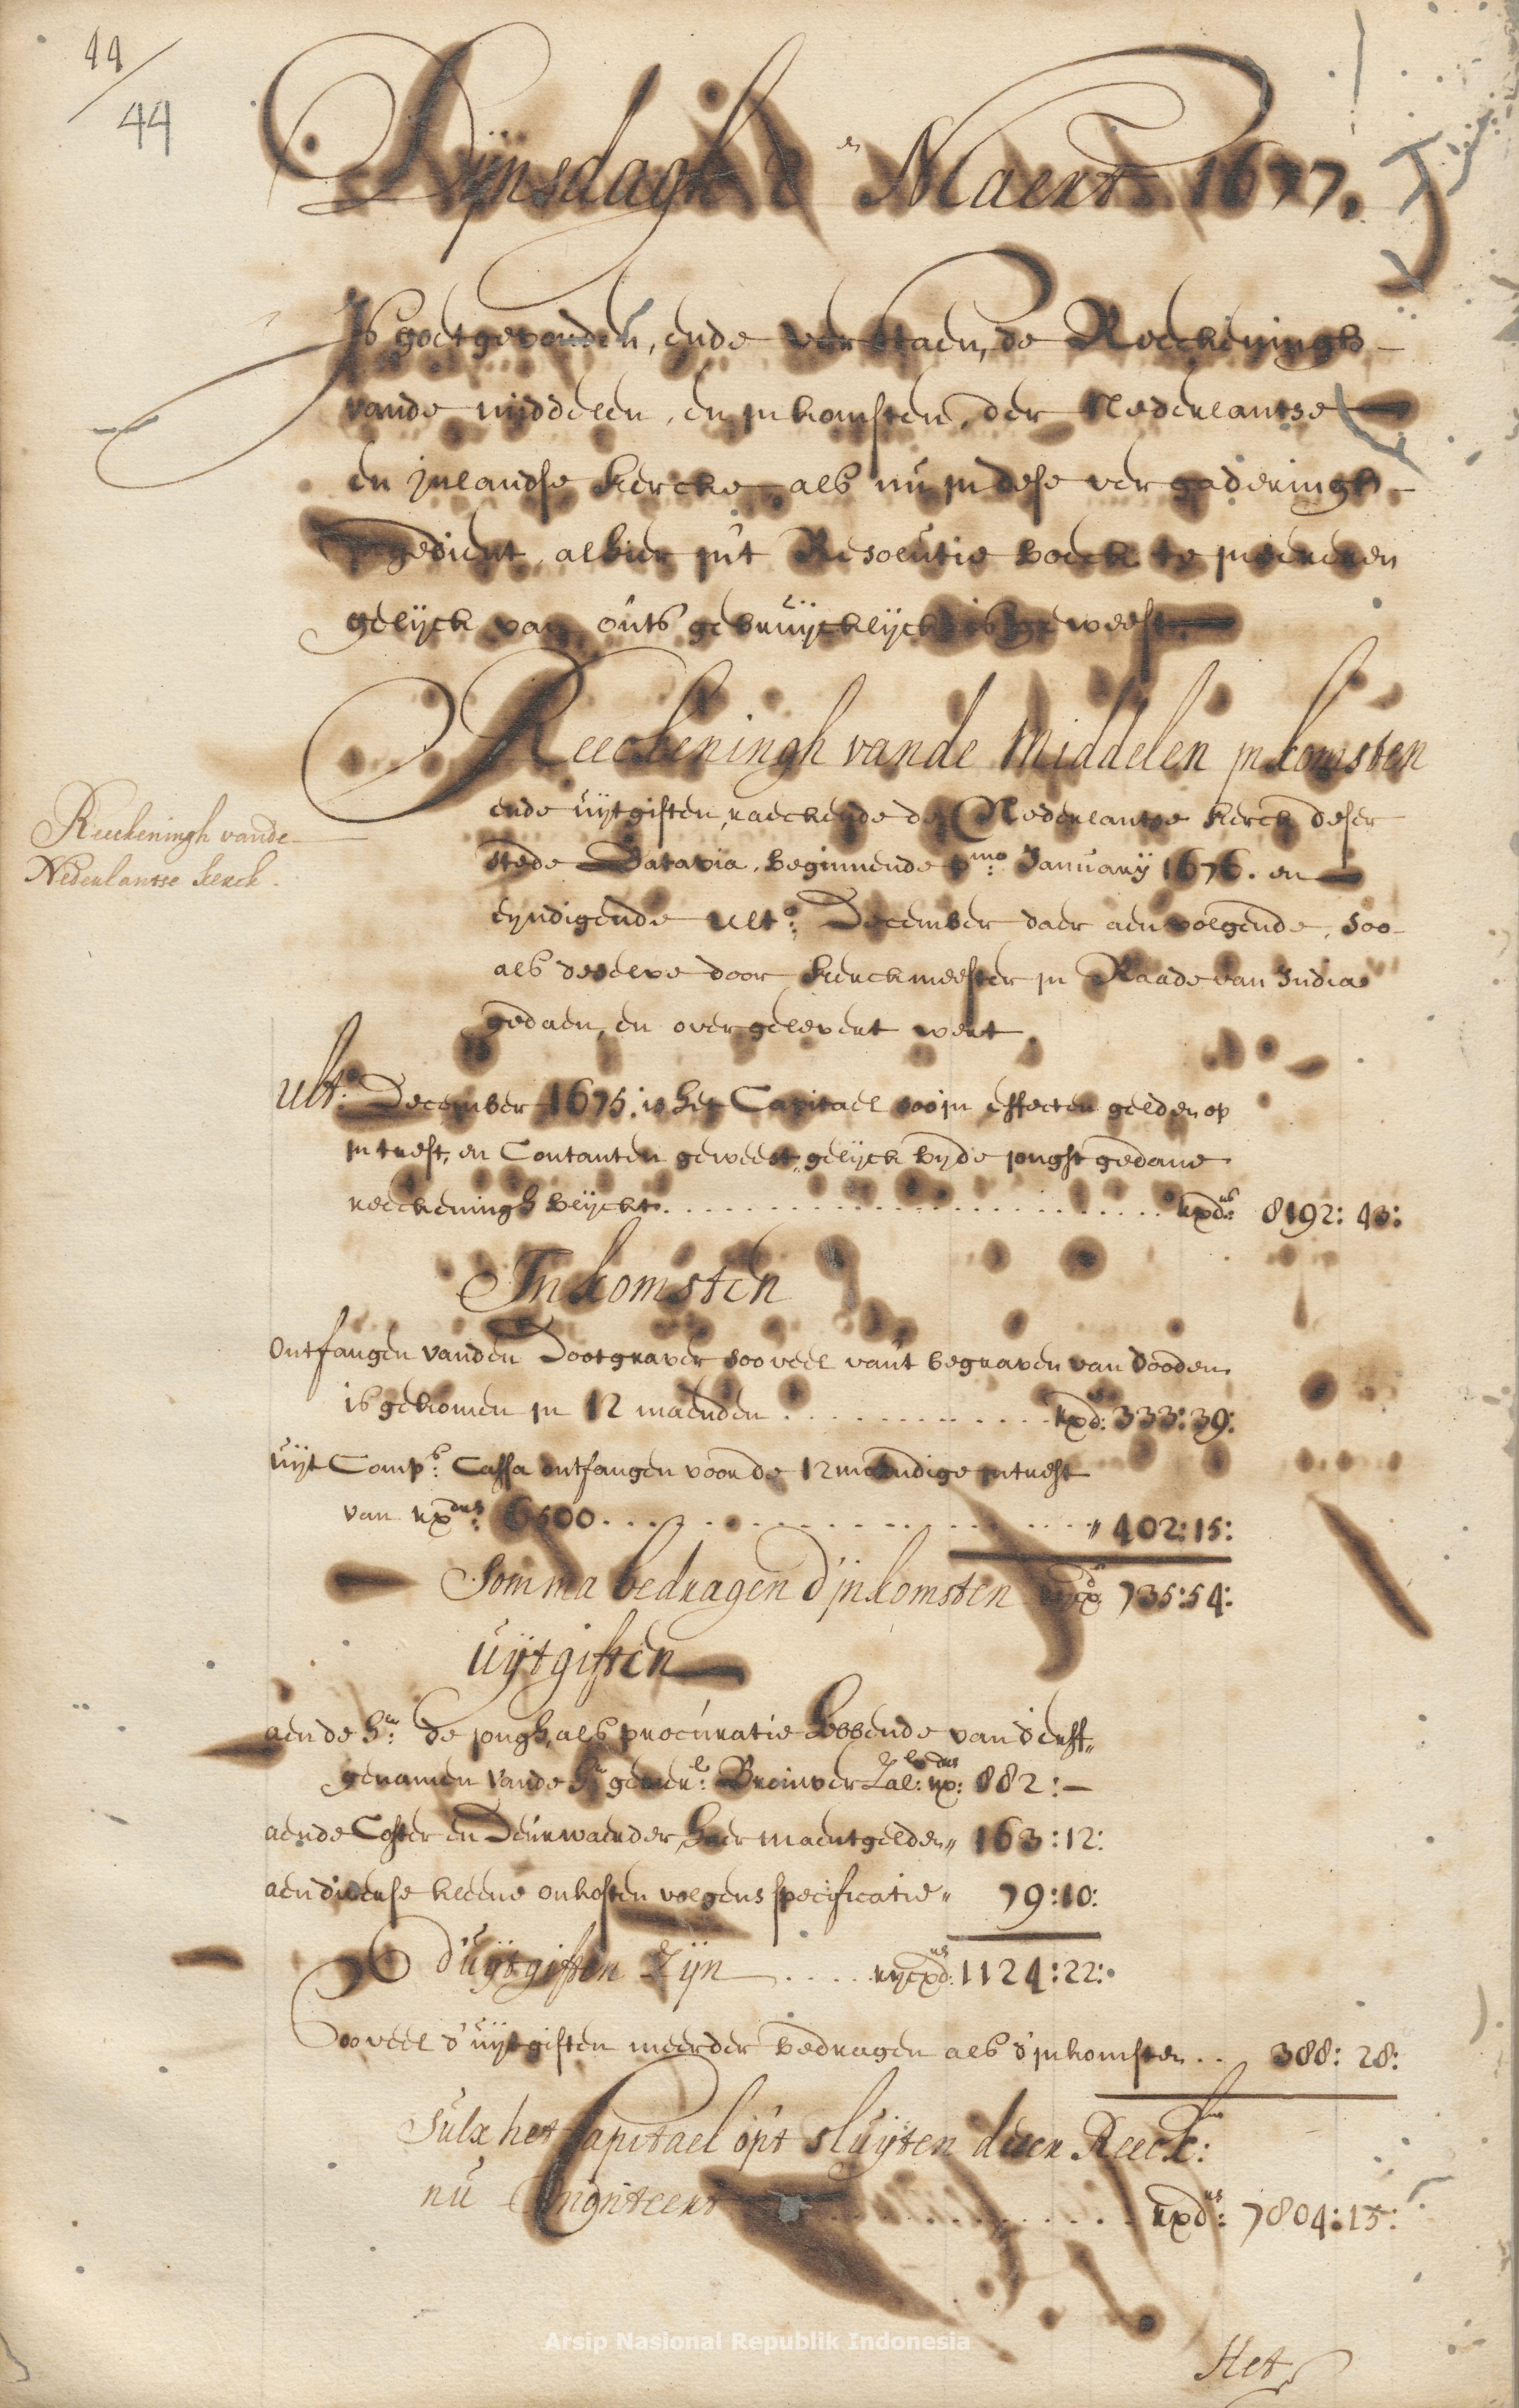 44
44
Dijnsdagh en Maert 1677.
Is goetgevonden, ende verstaen, de Reeckeningh
vande middelen, en inkomsten, der Nederlantse
en jnlandse kercke, als nu in dese vergaderingh
gedient, alhier in't Resolutie boeck te insereren
gelijck van outs gebruijcklijck is geweest.
Reeckeningh vande Middelen inkomsten
ende uijtgiften, raeckende de Nederlantse kerck deser
Reeckeningh vande
Nederlantse kerck.
stede Batavia, beginnende pmo: Januarij 1676. en
eyndigende ulto: December daer aen volgende, soo
als deselve door kerckmeester in Raade van India
gedaen, en overgelevert wert.
Ulto: December 1675. is het Capitael soo in effecten gelden op
intrest, en Contanten geweest, gelijck bij de jongst gedane
reeckeningh blijckt. rxds: 8192: 43:
Inkomsten
Ontfangen vanden Dootgraver soo veel van't begraven van dooden
is gekomen in 12 maenden rxds: 333:39:
uijt Comps: Cassa ontfangen voor de 12 maendige intrest
van rxdrs: 6500. " 402:15:
Somma bedragen d'inkomsten rijcxds 735:54:
Uijtgiften
aen de Hr: de jongh, als procuratie hebbende van d'erff„
genamen vande Hr generl: Reiniver Zal: rxdrs: 882:—
aende Coster en Deurwaerder, haer maentgelden „ 163:12:
aen diverse kleene onkosten volgens specificatie „ 79:10:
d'uijtgiften zijn rijcxds: 1124:22:
Sooveel d'uijtgiften meerder bedragen als d'inkomsten.. 388: 28:
Sulx het Capitael op't sluijten deser Reeck:
nu monteert rxds: 7804:15:
Het
Arsip Nasional Republik Indonesia